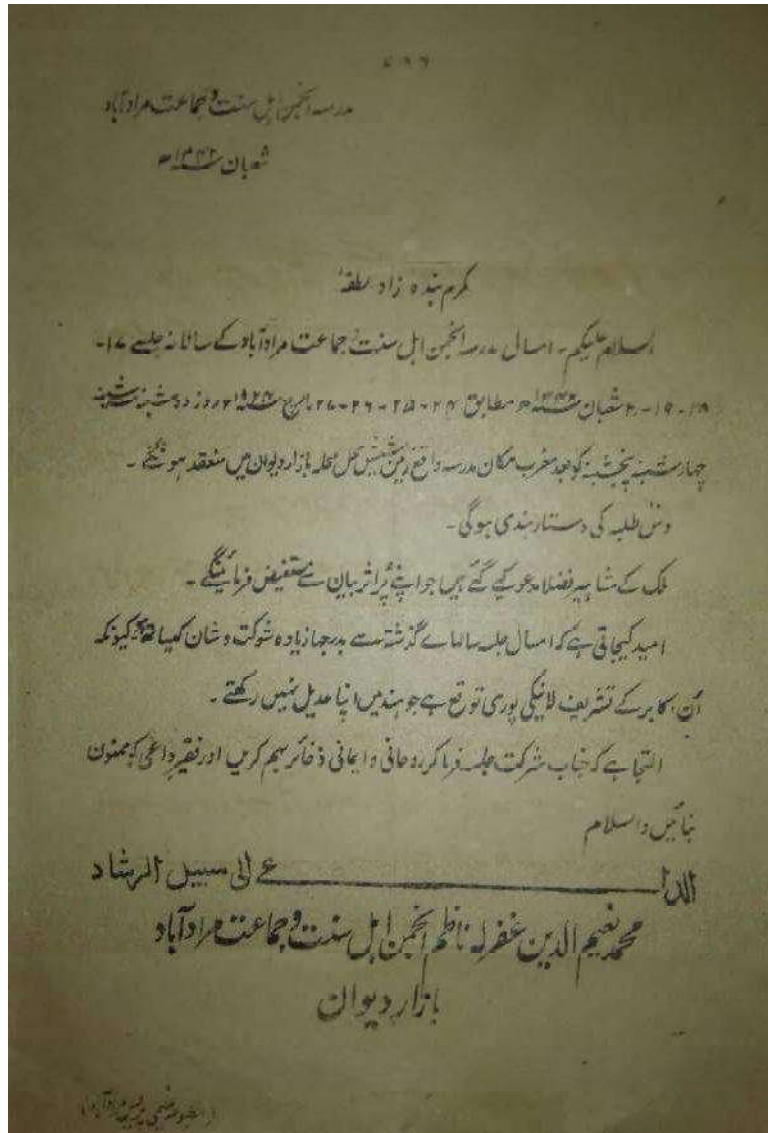 ۷۸۶
مدرسہ انجمن اہل سنت و جماعت مرادآباد
شعبان ۱۳۴۲ھ
مکرم بندہ زاد لطفہٗ
السلام علیکم۔ امسال مدرسہ انجمن اہل سنت و جماعت مرادآباد کے سالانہ جلسے ۱۷۔
۱۸-۱۹-۲۰ شعبان ۱۳۴۲ھ مطابق ۲۴-۲۵-۲۶-۲۷ مارچ ۱۹۲۴ء روز دوشنبہ سہ شنبہ
چہارشنبہ پنجشنبہ کو بعد مغرب مکان مدرسہ واقع محلہ بازار دیوان میں منعقد ہونگے۔
دس طلبہ کی دستاربندی ہوگی۔
ملک کے مشاہیر فضلا مدعو کیے گئے ہیں جو اپنے پُر اثر بیان سے مستفیض فرمائینگے۔
امید کیجاتی ہے کہ امسال جلسہ سالہاے گذشتہ سے بدرجہا زیادہ شوکت و شان کیساتھ ہو کیونکہ
اُن اکابر کے تشریف لانیکی پوری توقع ہے جو ہند میں اپنا عدیل نہیں رکھتے۔
التجا ہے کہ جناب شرکت جلسہ فرما کر روحانی و ایمانی ذخائر بہم کریں اور فقیر داعی کو ممنون
بنائیں والسلام
الداعی الی سبیل الرشاد
محمد نعیم الدین غفرلہ ناظم انجمن اہل سنت و جماعت مرادآباد
بازار دیوان